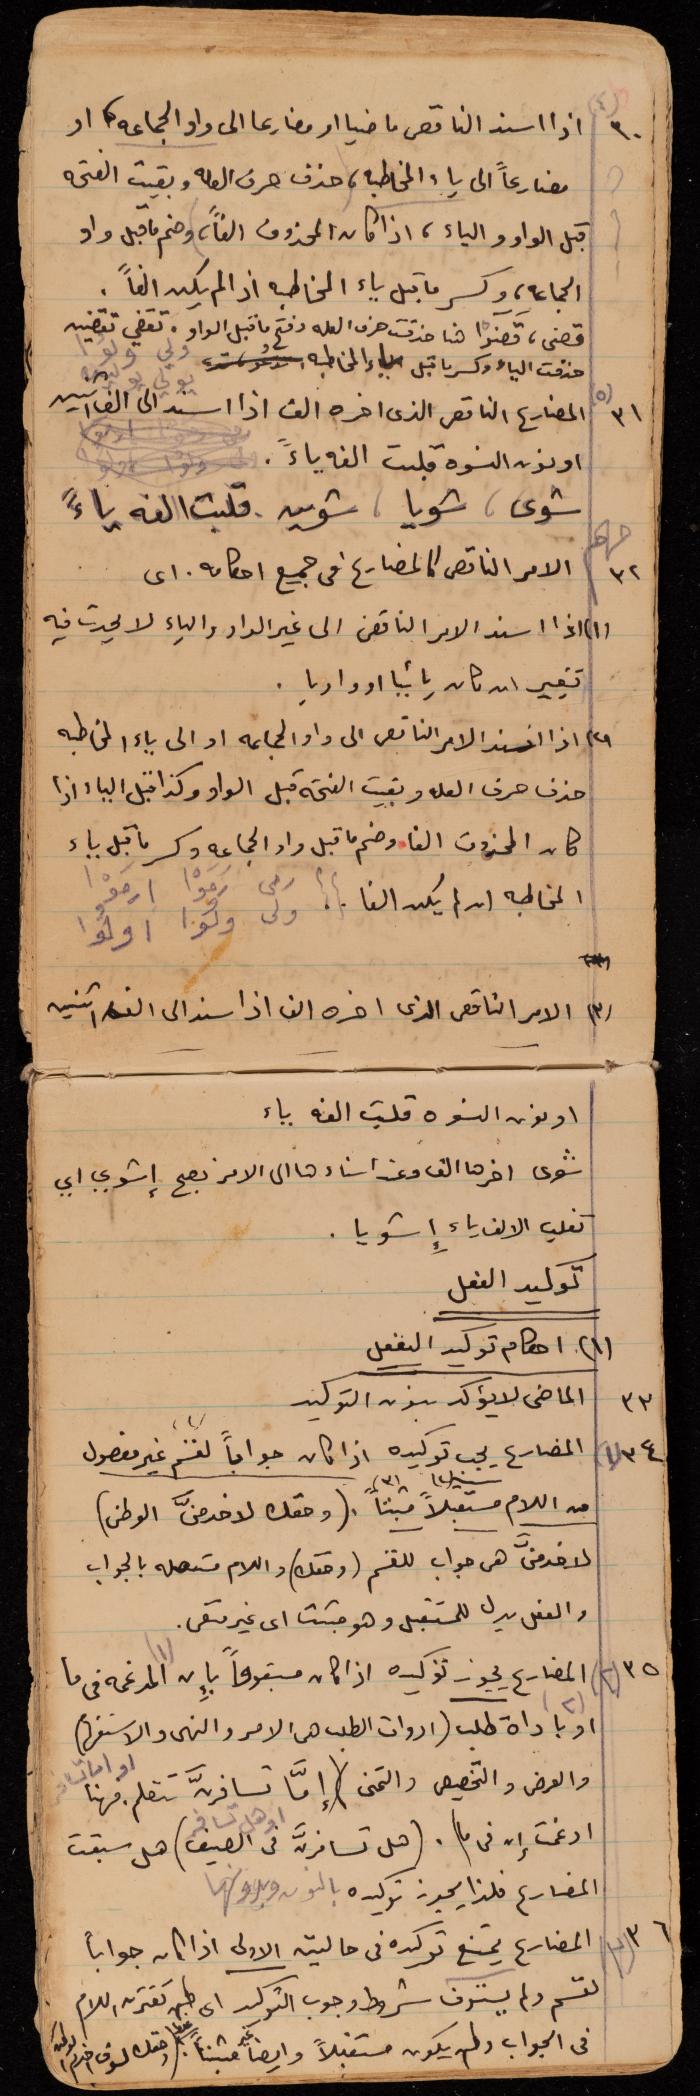 ٣٠ اذا اسند الناقص ماضيا او مضارعا الى واو الجماعه او
مضارعاً الى ياء المخاطبه، حذف حرف العله وبقيت الفتحه
قبل الواو والياء، اذا كان المحذوف الفاً، وضم ما قبل واو
الجماعه، وكسر ما قبل ياء المخاطبه اذا لم يكن الفاً.
قضى، قضَوْا هنا حذفت حرف العله وفتح ما قبل الواو. تقضي تقضين
حذفت الياء وكسر ما قبل ياء المخاطبه
ولي ولوا
٣١ (٥) المضارع الناقص الذى اخره الف اذا اسند الى الف اثنين
او نون النسوه قلبت الفه ياءً.
شوى، شويا، شوين. قلبت الفه ياءً
٣٢ الامر الناقص كالمضارع فى جميع احكامه. اى
(١) اذا اسند الامر الناقص الى غير الواو والياء لا يحدث فيه
تغيير ان كان يائيا او واويا.
(٢) اذا اسند الامر الناقص الى واو الجماعه او الى ياء المخاطبه
حذف حرف العله وبقيت الفتحه قبل الواو وكذا قبل الياء اذا
كان المحذوف الفا وضم ما قبل واو الجماعه وكسر ما قبل ياء
المخاطبه ان لم يكن الفا. رمى رَمَوْا ارمُوْا
ولى ولوا اولُوا
(٣) الامر الناقص الذى اخره الف اذا اسند الى الف اثنين
او نون النسوه قلبت الفه ياء
شوى اخرها الف وعند اسنادها الى الامر نصبح إشوي اي
تقلب الالف ياء إشويا.
توكيد الفعل
(١). احكام توكيد الفعل
٣٣ الماضى لا يؤكد بنون التوكيد
٣٤ (١) المضارع يجب توكيده اذا كان جواباً لقسم غير مفصول
من اللام مستقبلاً مثبتاً. (وحقك لاخدمنَّ الوطن)
لاخدمنَّ هى جواب للقسم (وحقك) واللام متصله بالجواب
والفعل يدل للمستقبل وهو مثبت اى غير منفى.
٣٥ (٢) المضارع يجوز توكيده اذا كان مسبوقاً بإن المدغمه فى ما
او باداة طلب (ادوات الطلب هى الامر والنهى والاستفهام)
والعرض والتحضيض والتمنى) إمَّا تسافرنَّ تتعلم. فهنا
ادغمت إن فى ما. (هل تسافرنَّ فى الصيف) هل سبقت
او هل تسافر
المضارع فلذا يجوز توكيده بالنون وبدونها
٣٦ (٣) المضارع يمتنع توكيده فى حالتين الاولى اذا كان جواباً
لقسم ولم يستوف شروط وجوب التوكيد اى لم تقترن اللام
فى الجواب ولم يكون مستقبلاً وايضاً مثبتاً. (وحقك لسوف اخدم الوطن)